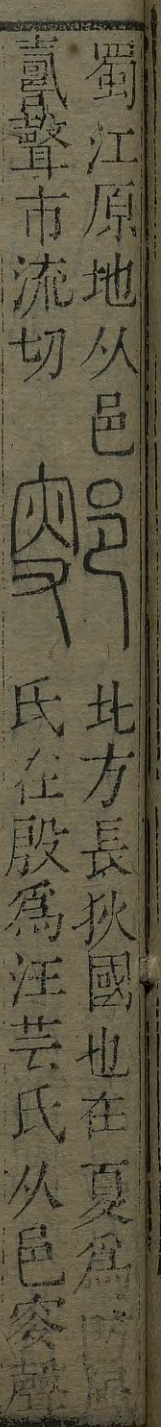 蜀江原地从邑
𠷎聲市流切
鄋
北方長狄國也在夏爲防風
氏在殷爲汪芒氏从邑叜聲